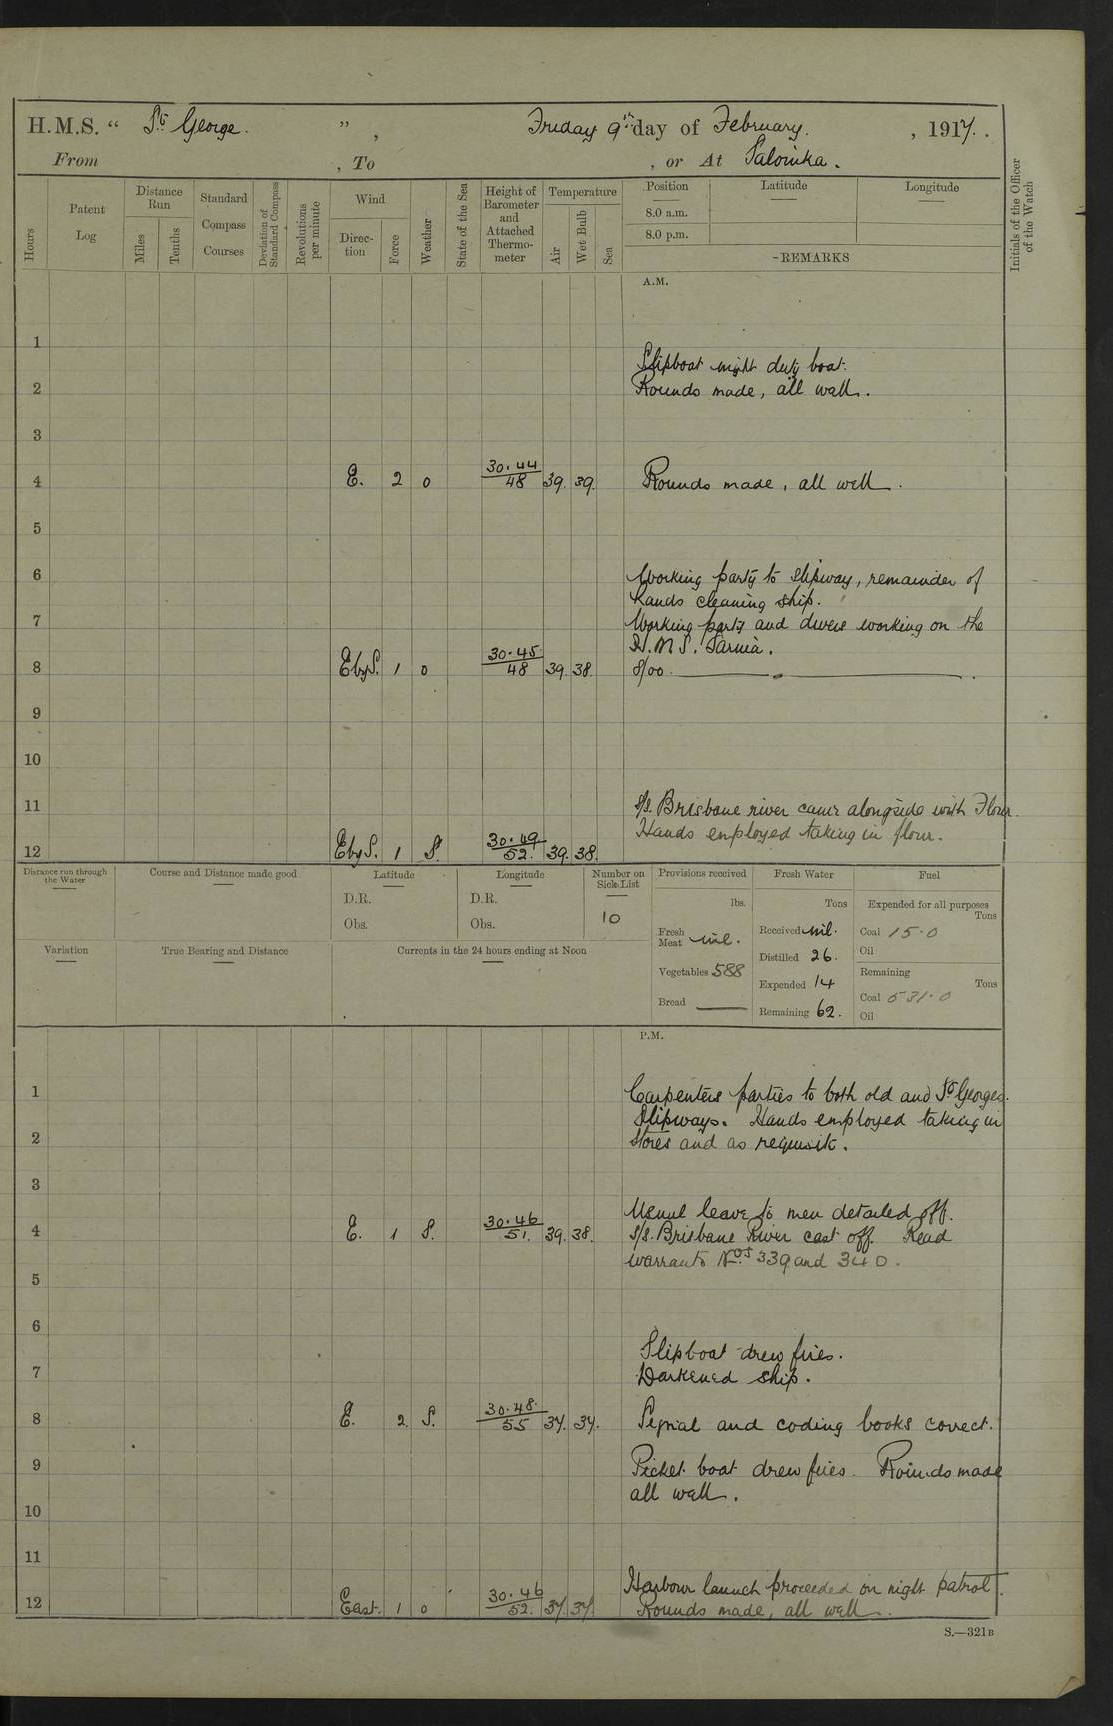 H.M.S. " St George. " , Friday 9th day of February. , 1917. .
From , To , or At Salonika.
Hours
Patent Log
Distance Run
Miles
Tenths
Standard Compass Courses
Deviation of Standard Compass
Revolutions per minute
Wind
Direction
Force
Weather
State of the Sea
Height of Barometer and Attached Thermometer
Temperature
Air
Wet Bulb
Sea
Position
8.0 a.m.
8.0 p.m.
Latitude
Longitude
-REMARKS
Initials of the Officer of the Watch
A.M.
1
Slipboat night duty boat.
2 Rounds made, all well.
3
4 E. 2 o 30.44/48 39. 39. Rounds made, all well.
5
6 Working party to slipway, remainder of
hands cleaning ship.
7 Working party and divers working on the
H.M.S. Sarnia.
8 E by S. 1 o 30.45/48 39. 38. 8/00.
9
10
11 S/S. Brisbane river came alongside with Flour.
Hands employed taking in flour.
12 E by S. 1 S. 30.49/52. 39. 38.
Distance run through the Water
Course and Distance made good
Latitude
D.R.
Obs.
Longitude
D.R.
Obs.
Number on Sick List
10
Provisions received
lbs.
Fresh Meat nil.
Vegetables 588
Bread
Fresh Water
Tons
Received nil.
Distilled 26.
Expended 14
Remaining 62.
Fuel
Expended for all purposes
Tons
Coal 15.0
Oil
Remaining
Tons
Coal 531.0
Oil
Variation
True Bearing and Distance
Currents in the 24 hours ending at Noon
P.M.
1 Carpenters parties to both old and St Georges.
Slipways. Hands employed taking in
2 stores and as requisite.
3
Usual leave to men detailed off.
4 E. 1 S. 30.46/51. 39. 38. S/S. Brisbane River cast off. Read
warrants Nos 339 and 340.
5
6
Slipboat drew fires.
7 Darkened ship.
8 E. 2 S. 30.48./55 37. 37. Signal and coding books correct.
9 Picket boat drew fires. Rounds made
all well.
10
11
Harbour launch proceeded on night patrol.
12 East. 1 o 30.46/52. 37. 37. Rounds made, all well.
S.—321B